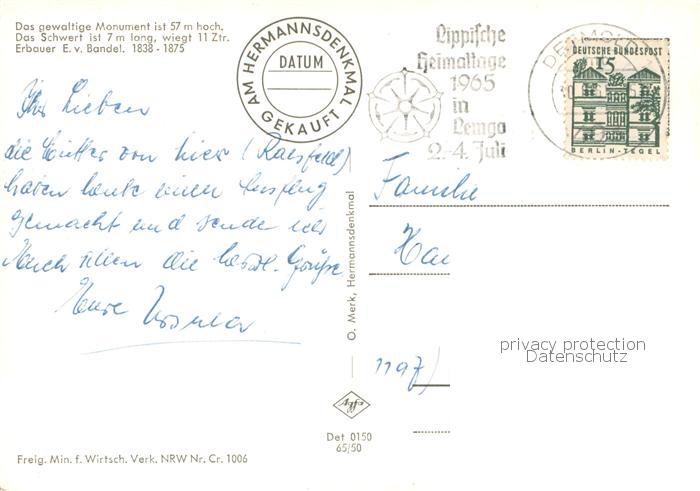 Das gewaltige Monument ist 57 m hoch.
Das Schwert ist 7 m lang, wiegt 11 Ztr.
Erbauer E. v. Bandel. 1838 - 1875
AM HERMANNSDENKMAL
DATUM
GEKAUFT
Lippische
Heimattage
1965
in
Lemgo
2.-4. Juli
DETMOLD
DEUTSCHE BUNDESPOST
15
BERLIN-TEGEL
Ihr Lieben
die Mütter von hier (Raesfeld)
haben heute einen Ausflug
gemacht und sende ich
Euch allen die herzl. Grüße
Eure Ursula
Familie
Hau
O. Merk, Hermannsdenkmal
privacy protection
Datenschutz
Agfa
Det 0150
65/50
Freig. Min. f. Wirtsch. Verk. NRW Nr. Cr. 1006